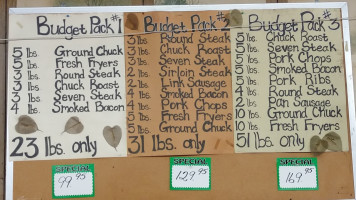 Budget Pack #1
5 lbs. Ground Chuck
5 lbs. Fresh Fryers
3 lbs. Round Steak
3 lbs. Chuck Roast
3 lbs. Seven Steak
4 lbs. Smoked Bacon
23 lbs. only
SPECIAL
99.95
Budget Pack #2
3 lbs. Round Steak
3 lbs. Chuck Roast
3 lbs. Seven Steak
2 lbs. Sirloin Steak
2 lbs. Link Sausage
4 lbs. Smoked Bacon
4 lbs. Pork Chops
5 lbs. Fresh Fryers
5 lbs. Ground Chuck
31 lbs. only
SPECIAL
129.95
Budget Pack #3
5 lbs. Chuck Roast
5 lbs. Seven Steak
5 lbs. Pork Chops
5 lbs. Smoked Bacon
5 lbs. Pork Ribs
4 lbs. Round Steak
2 lbs. Pan Sausage
10 lbs. Ground Chuck
10 lbs. Fresh Fryers
51 lbs. only
SPECIAL
169.95